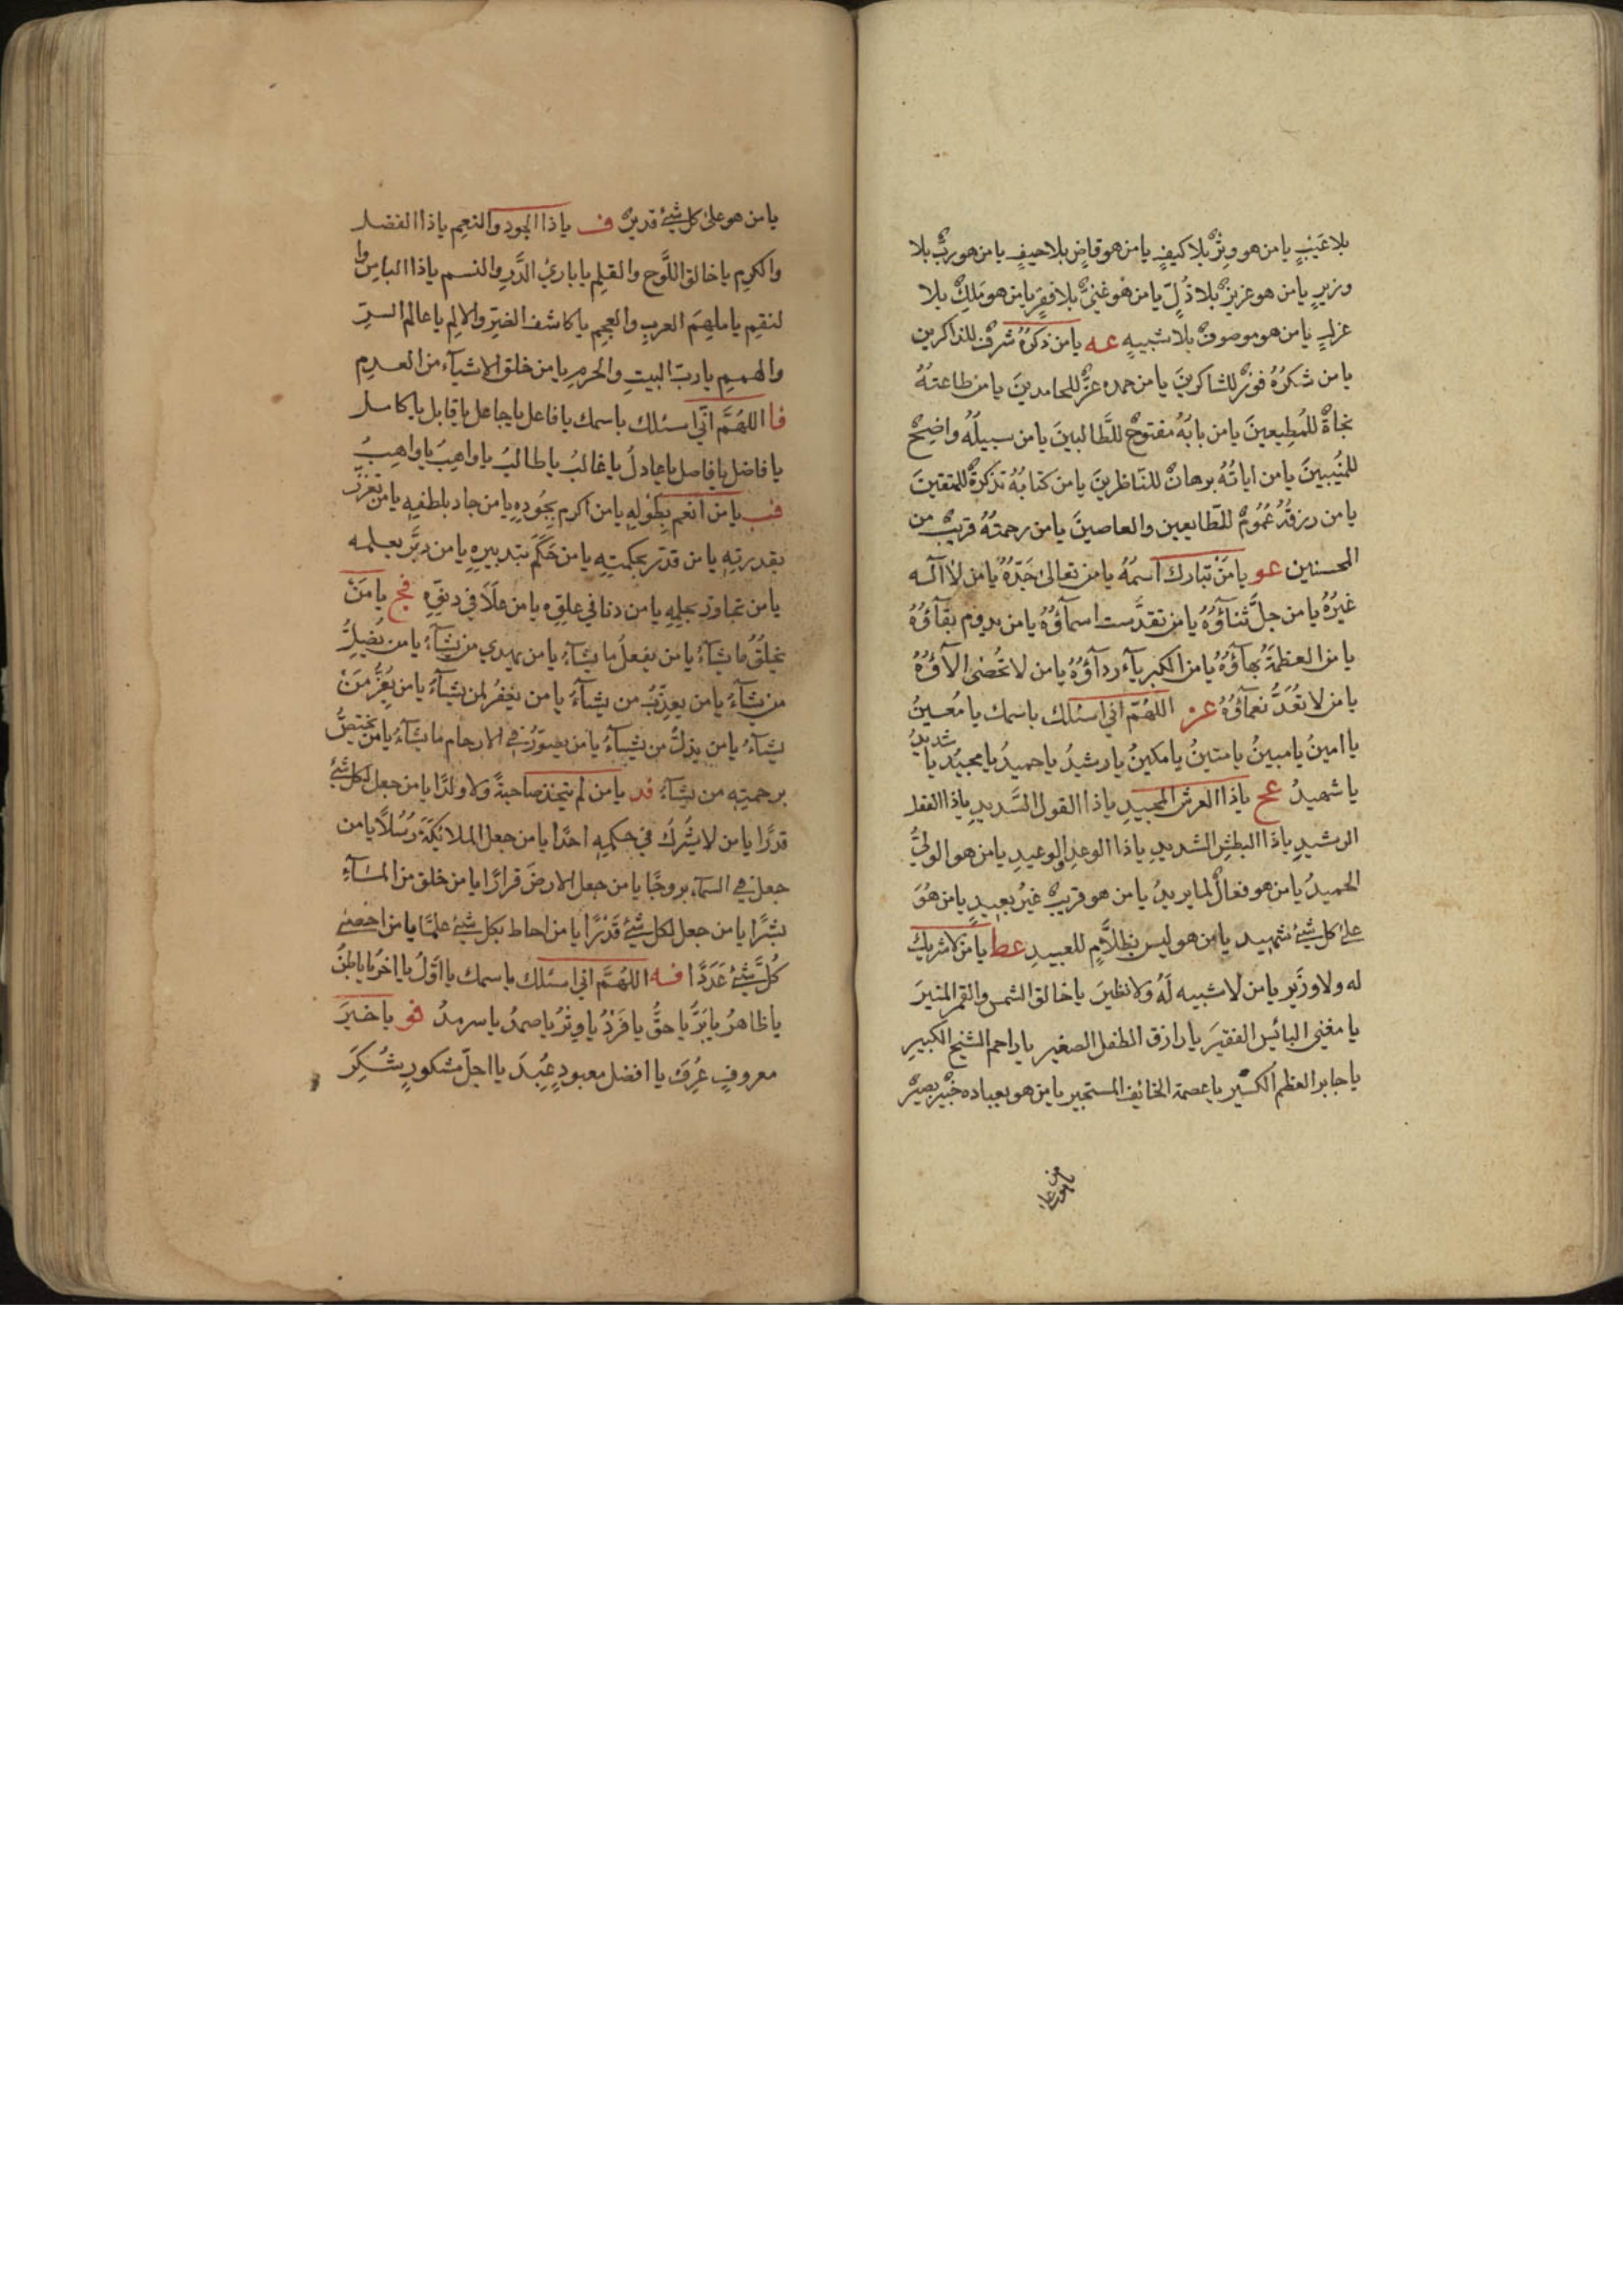 بلا عَيْبٍ يا من هو وِترٌ بلا كيفٍ يا من هو قاضٍ بلا حيفٍ يا من هو ربٌّ بلا
وزيرٍ يا من هو عزيزٌ بلا ذُلٍّ يا من هو غنيٌّ بلا فقرٍ يا من هو مَلِكٌ بلا
عزلٍ يا من هو موصوفٌ بلا شبيهٍ عه يا من ذكرُهُ شرفٌ للذاكرين
يا من شكرُهُ فوزٌ للشاكرينَ يا من حمده عزٌّ للحامدينَ يا من طاعتهُ
نجاةٌ للمُطِيعينَ يا من بابُهُ مفتوحٌ للطَّالبينَ يا من سبيلُه واضِحٌ
للمُنيبينَ يا من اياتُهُ برهانٌ للنّاظرينَ يا من كتابُهُ تذكرةٌ للمتقينَ
يا من رزقُهُ عُمُومٌ للطّايعين والعاصينَ يا من رحمتهُ قريبٌ من
المحسنين عو يا مَنْ تبارك اسمُهُ يا من تعالىٰ جَدّهُ يا من لا اله
غيرُهُ يا من جلَّ ثناؤُهُ يا من تقدَّست اسمآؤُهُ يا من يدوم بقآؤُهُ
يا من العظمَةُ بهآؤُهُ يا من الكبريآء ردآؤُهُ يا من لا تُحصٰى الآؤُهُ
يا من لا تُعَدُّ نعمآؤُهُ عز اللهُمّ اني اسئلك باسمك يا مُعينُ
يا امينُ يا مبينُ يا متينُ يا مكينُ يا رشيدُ يا حميدُ يا مجيدُ يا شديدُ
يا شهيدُ عح يا ذا العرش المجيدِ يا ذا القول السَّديدِ يا ذا الفعل
الرشيدِ يا ذا البطشِ الشديدِ يا ذا الوعدِ والوعيدِ يا من هو الوليُّ
الحميدُ يا من هو فعالٌ لما يريدُ يا من هو قريبٌ غيرُ بعيدٍ يا من هُوَ
على كل شئ شهيد يا من هو ليس بظلاَّمٍ للعبيدِ عط يا مَن لا شريك
له ولا وزَير يا من لا شبيه لَهُ ولا نظيرَ يا خالق الشمس والقمر المنيرَ
يا مغني البائس الفقيرَ يا رازق الطفل الصغير يا راحم الشيخ الكبيرِ
يا جابر العظم الكسير يا عصمة الخائف المستجير يا من هو بعباده خبيرٌ بصيرٌ
يا من هو على
يا من هو علىٰ كل شئ قديرٌ ف يا ذا الجود والنعِم يا ذا الفضل
والكرِم يا خالق اللَّوح والقلِم يا بارئ الذَّرِ والنسم يا ذا الباسِ وا
لنقِم يا ملهِمَ العربِ والعجِم يا كاشف الضرِّ والالِم يا عالم السرِّ
والهممِ يا ربّ البيتِ والحرمِ يا من خلق الاشيآء من العدِم
فا اللهُمَّ انّي اسئلك باسمك يا فاعل يا جاعل يا قابل يا كامل
يا فاضل يا فاصل يا عادلُ يا غالبُ يا طالبُ يا واهِبُ يا واهِبُ
فب يا من انعم بِطَولِهِ يا من اكرم بجُودِهِ يا من جاد بلطفِهِ يا من تعزّز
بقدرتِهِ يا من قدّر بحكمتِهِ يا من حَكَمَ بتدبيرِهِ يا من دبَّر بعلمه
يا من تجاوز بحلمِهِ يا من دنا في علوِّه يا من علَا في دنوِّهِ فج يا مَنْ
يخلُقُ ما يشآءُ يا من يفعلُ ما يشآءُ يا من يهدي من يشآءُ يا من يُضِلُّ
من يشآءُ يا من يعذِّبُ من يشآءُ يا من يغفرُ لمن يشآءُ يا من يُعِزُّ مَنْ
يشآءُ يا من يذلُّ من يشآءُ يا من يصوّرُ في الارحام ما يشآءُ يا من يختصُّ
برحمتِه من يشآءُ فد يا من لم يتخذ صاحبةً ولا ولدًا يا من جعل لكل شئ
قدرًا يا من لا يشركُ في حكمِهِ احدًا يا من جعل الملائكَةَ رُسُلاً يا من
جعل في السمآء بروجًا يا من جعل الارضَ قرارًا يا من خلق من المآءِ
بشرًا يا من جعل لكل شئ قَدْرًا يا من احاط بكل شئ علمًا يا من احصىٰ
كُلَّ شئ عَدَدًا فه اللهُمَّ اني اسئلك باسمك يا اوّلُ يا اخرُ يا باطنُ
يا ظاهرُ يا بَرُّ يا حقُّ يا فَرْدُ يا وِترُ يا صمدُ يا سرمدُ فو يا خيرَ
معروفٍ عُرِفَ يا افضل معبودٍ عُبِدَ يا اجلّ مشكورٍ شُكِرَ